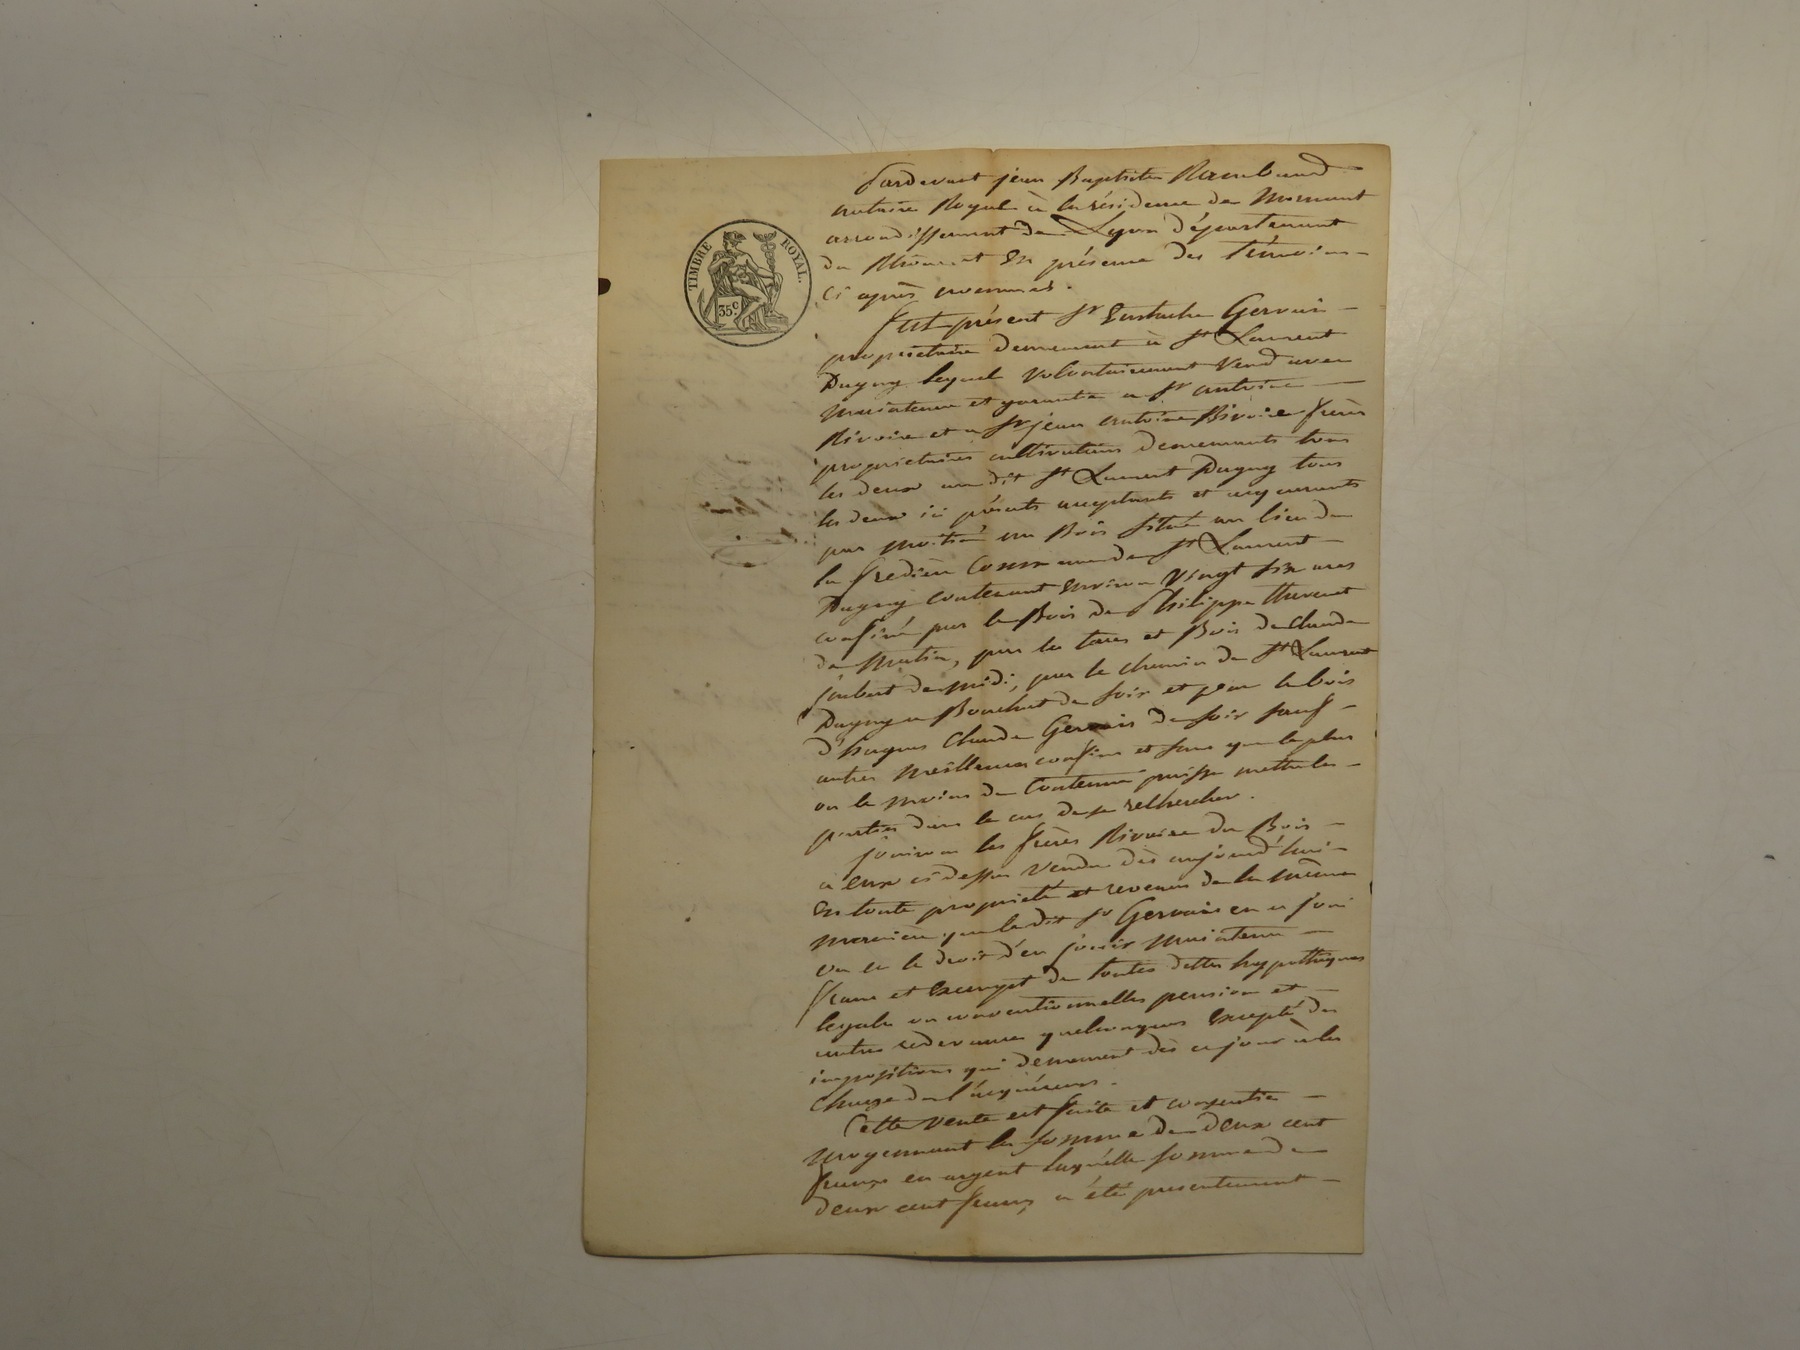 TIMBRE ROYAL.
35 c
Pardevant jean Baptiste Rambaud
notaire Royal à la résidence de Mornant
arrondissement de Lyon département
du Rhône et En présence des témoins
ci après nommés.
Fut présent Sr Eustache Gervais
propriétaire demeurant à St Laurent
Dagny lequel volontairement vend avec
maintenue et garantie a Sr antoine
Rivoire et a Sr jean antoine Rivoire frères
proprietaires cultivateurs demeurants tous
les deux au dit St Laurent Dagny tous
les deux ici présents acceptants et acquerants
par moitié un Bois situé au lieu de
la fredière Commune de St Laurent
Dagny contenant Environ Vingt six ares
confiné par le Bois de Philippe thevenet
de matin, par les terres et Bois de Claude
joubert de midi, par le chemin de St Laurent
Dagny a Bouchat de soir et par le bois
d'hugues Claude Gervais de soir sauf
autres meilleurs confins et sans que le plus
ou le moins de Contenue puisse mettre les
parties dans le cas de se rechercher.
jouiront les frères Rivoire du Bois
a eux ci dessus vendu dès aujourd'hui
En toute propriété et revenus de la même
manière que le dit Sr Gervais en a joui
ou eu le droit d'en jouir maintenu
franc et Exempt de toutes dettes hypothèques
legales ou conventionnelles pension et
autres redevances quelconques Excepté des
impositions qui demeurent dès ce jour à la
Charge de l'acquéreurs.
Cette vente est faite et consentie
moyennant la somme de deux cent
francs en argent laquelle somme de
deux cent francs a été presentement